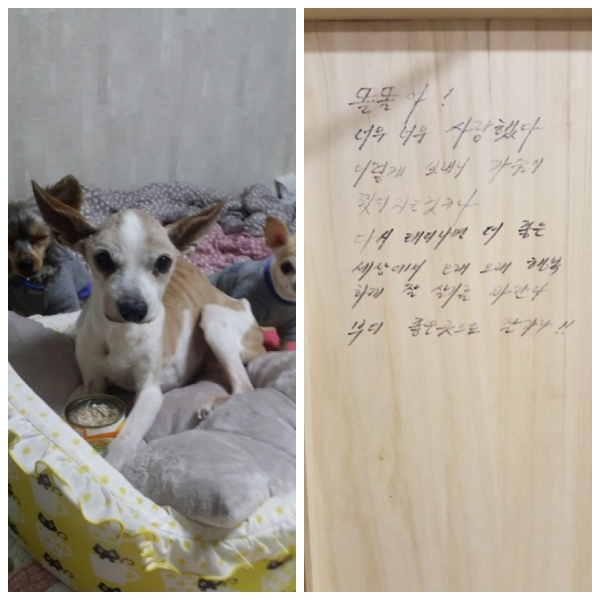 똘똘아!
너무 너무 사랑했다
이렇게 보내니 가슴이
찢어지는것 같구나
다시 태어나면 더 좋은
세상에서 오래 오래 행복
하게 잘 살기를 바란다
부디 좋은곳으로 잘가라!!